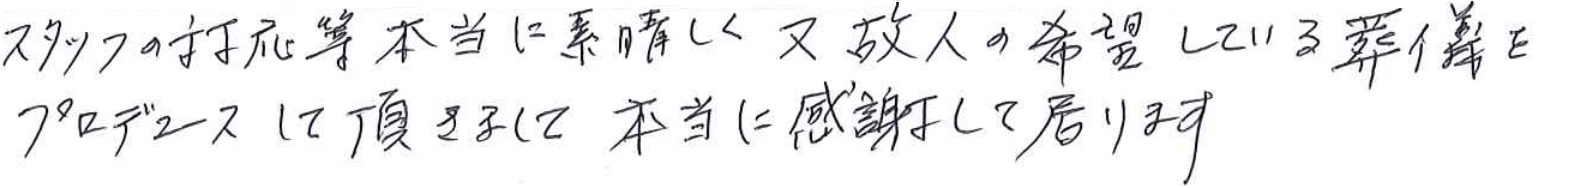 スタッフの対応等本当に素晴しく又故人の希望している葬儀を
プロデュースして頂きまして本当に感謝して居ります